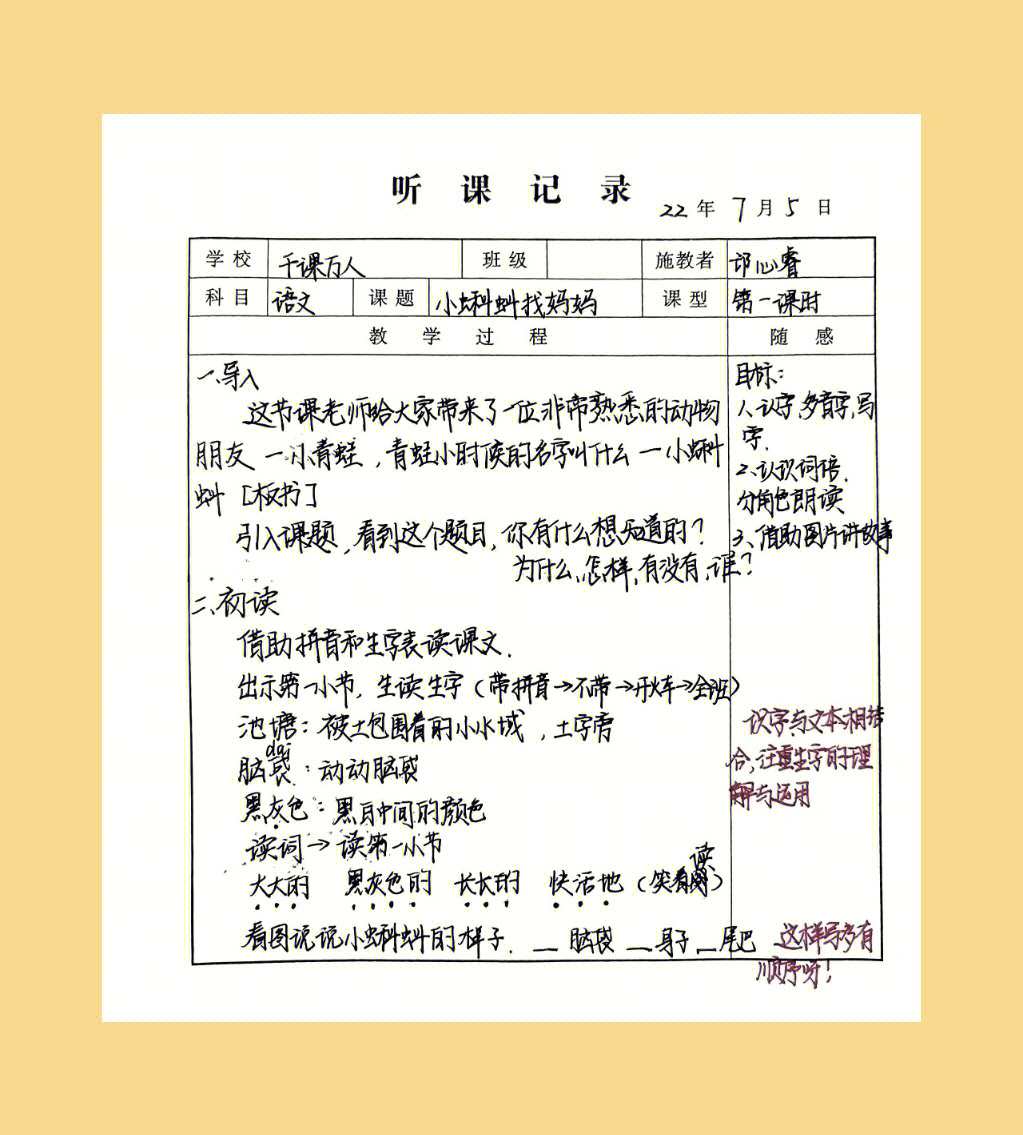 听课记录
22年7月5日
学校 千课万人 班级 施教者 邙心睿
科目 语文 课题 小蝌蚪找妈妈 课型 第一课时
教学过程 随感
一、导入
这节课老师给大家带来了一位非常熟悉的动物
朋友—小青蛙，青蛙小时候的名字叫什么—小蝌
蚪[板书]
引入课题，看到这个题目，你有什么想知道的？
为什么、怎样，有没有，谁？
二、初读
借助拼音和生字表读课文.
出示第一小节，生读生字（带拼音→不带→开火车→全班）
池塘：被土包围着的小水域，土字旁
dai
脑袋：动动脑袋
黑灰色：黑白中间的颜色
读词→读第一小节
读
大大的 黑灰色的 长长的 快活地（笑着）
看图说说小蝌蚪的样子. __脑袋__身子__尾巴
目标：
1、认字，多音字，写
字.
2、认识词语.
分角色朗读
3、借助图片讲故事
识字与文本相结
合，注重生字的理
解与运用
这样写多有
顺序呀！